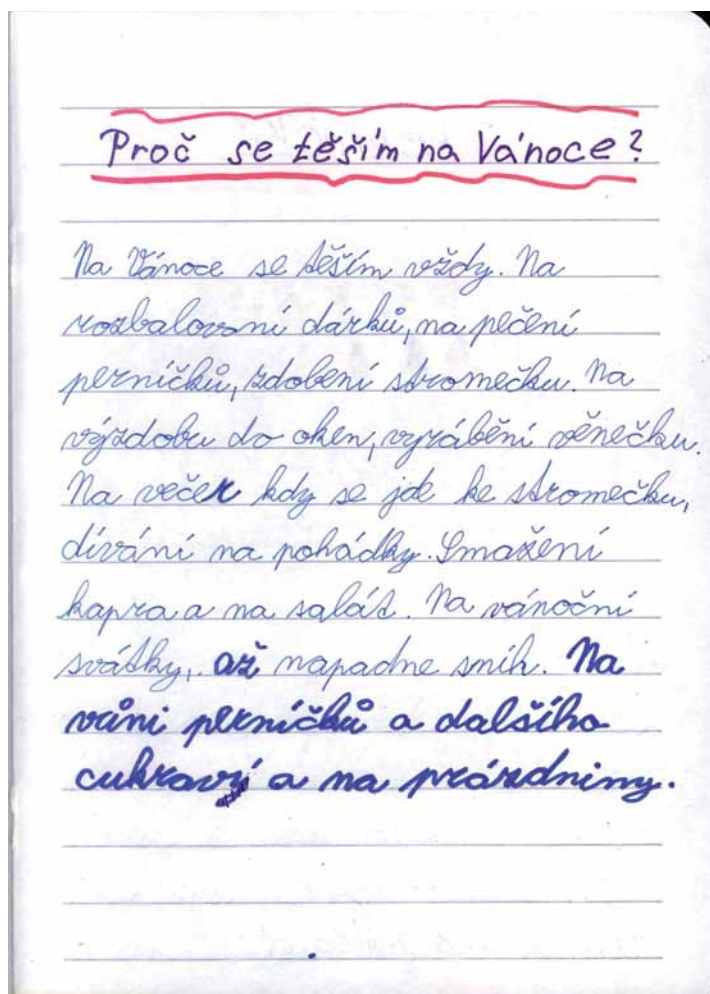 Proč se těším na Vánoce?
Na Vánoce se těším vždy. Na
rozbalování dárků, na pečení
perníčků, zdobení stromečku. Na
výzdobu do oken, vyrábění věnečku.
Na večer kdy se jde ke stromečku,
dívání na pohádky. Smažení
kapra a na salát. Na vánoční
svátky, až napadne sníh. Na
vůni perníčků a dalšího
cukraví a na prázdniny.